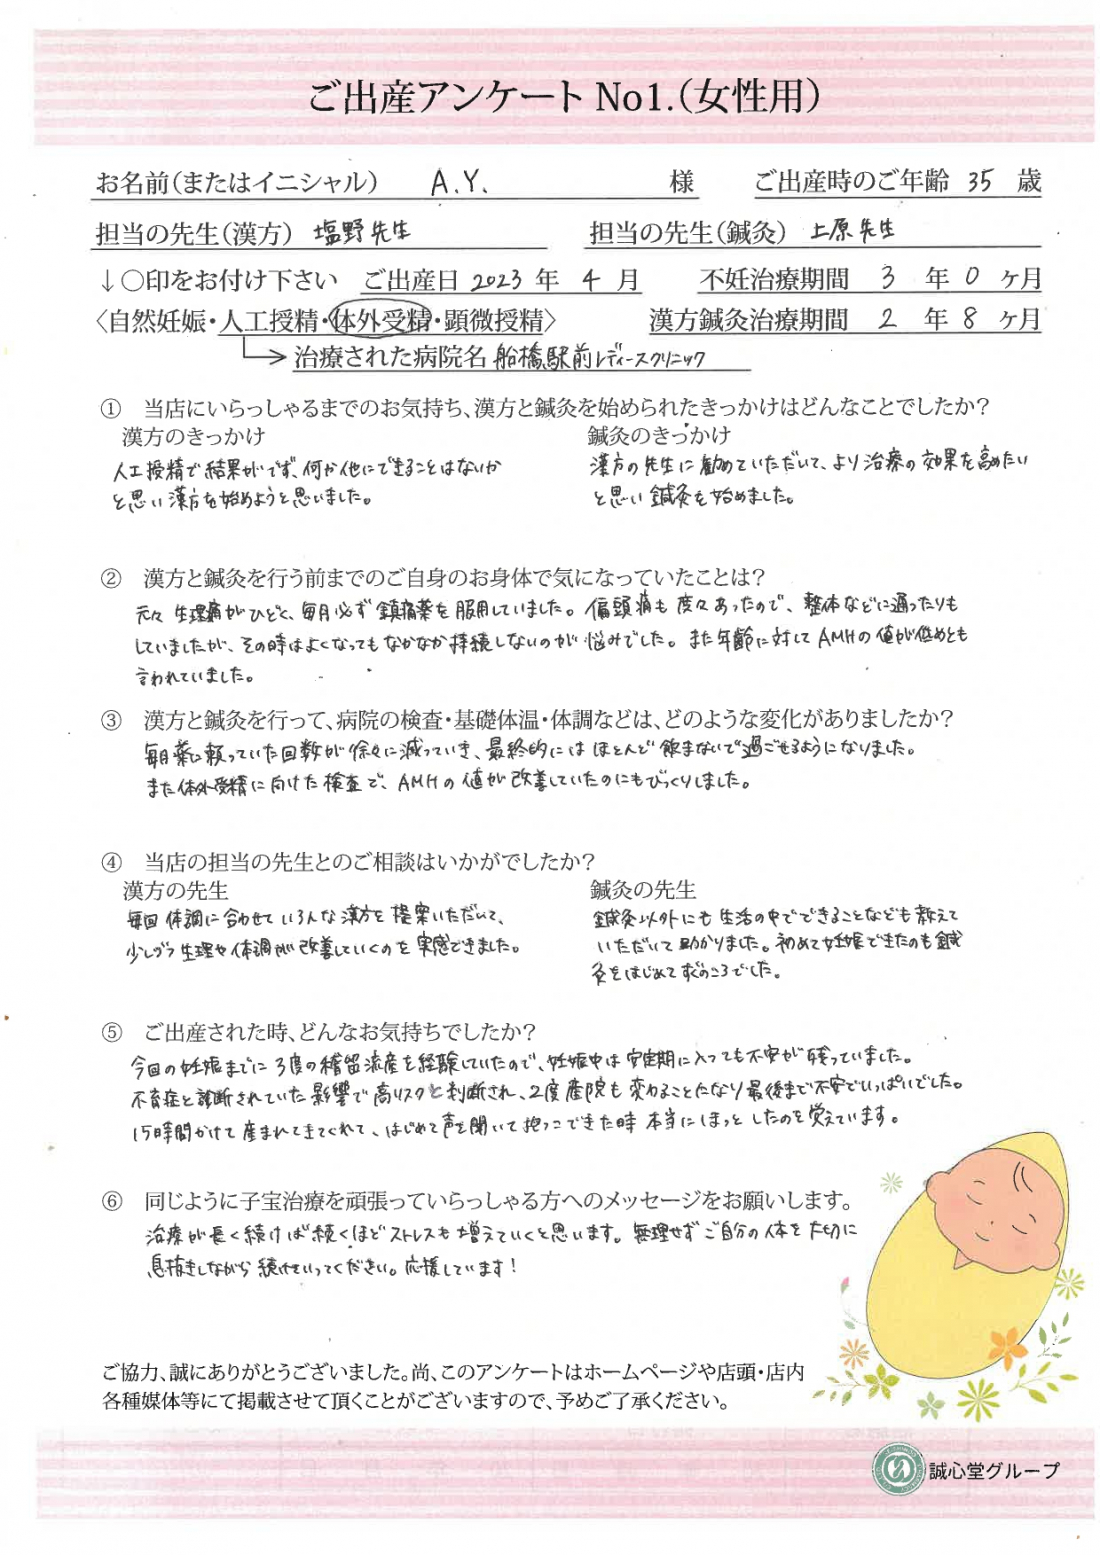 ご出産アンケート No1.(女性用)
お名前(またはイニシャル) A.Y. 様 ご出産時のご年齢 35 歳
担当の先生(漢方) 塩野先生 担当の先生(鍼灸) 上原先生
↓○印をお付け下さい ご出産日 2023 年 4 月 不妊治療期間 3 年 0 ヶ月
〈自然妊娠・人工授精・体外受精・顕微授精〉 漢方鍼灸治療期間 2 年 8 ヶ月
治療された病院名 船橋駅前レディースクリニック
① 当店にいらっしゃるまでのお気持ち、漢方と鍼灸を始められたきっかけはどんなことでしたか?
漢方のきっかけ
人工授精で結果がでず、何か他にできることはないか
と思い漢方を始めようと思いました。
鍼灸のきっかけ
漢方の先生に勧めていただいて、より治療の効果を高めたい
と思い鍼灸を始めました。
② 漢方と鍼灸を行う前までのご自身のお身体で気になっていたことは?
元々生理痛がひどく、毎月必ず鎮痛薬を服用していました。偏頭痛も度々あったので、整体などに通ったりも
していましたが、その時はよくなってもなかなか持続しないのが悩みでした。また年齢に対してAMHの値が低めとも
言われていました。
③ 漢方と鍼灸を行って、病院の検査・基礎体温・体調などは、どのような変化がありましたか?
毎月薬に頼っていた回数が徐々に減っていき、最終的にはほとんど飲まないで過ごせるようになりました。
また体外受精に向けた検査で、AMHの値が改善していたのにもびっくりしました。
④ 当店の担当の先生とのご相談はいかがでしたか?
漢方の先生
毎回体調に合わせていろんな漢方を提案いただいて、
少しづつ生理や体調が改善していくのを実感できました。
鍼灸の先生
鍼灸以外にも生活の中でできることなども教えて
いただいて助かりました。初めて妊娠できたのも鍼
灸をはじめてすぐのころでした。
⑤ ご出産された時、どんなお気持ちでしたか?
今回の妊娠までに3度の稽留流産を経験していたので、妊娠中は安定期に入っても不安が残っていました。
不育症と診断されていた影響で高リスクと判断され、2度産院も変わることになり最後まで不安でいっぱいでした。
15時間かけて産まれてきてくれて、はじめて声を聞いて抱っこできた時本当にほっとしたのを覚えています。
⑥ 同じように子宝治療を頑張っていらっしゃる方へのメッセージをお願いします。
治療が長く続けば続くほどストレスも増えていくと思います。無理せずご自分の体を大切に
息抜きしながら続けていってください。応援しています!
ご協力、誠にありがとうございました。尚、このアンケートはホームページや店頭・店内
各種媒体等にて掲載させて頂くことがございますので、予めご了承ください。
誠心堂グループ